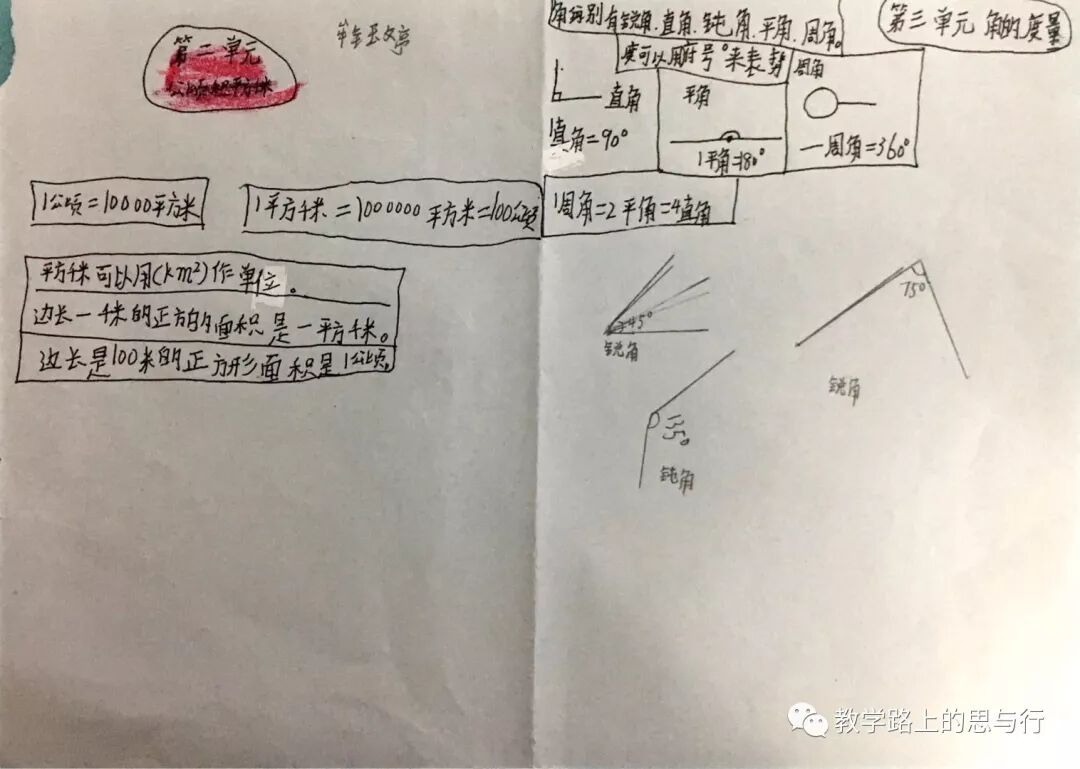 第二单元
公顷和平方千米
1公顷=10000平方米
1平方千米=1000000平方米=100公顷
平方千米可以用(km²)作单位。
边长一千米的正方的面积是一平方千米。
边长是100米的正方形面积是1公顷。
第三单元 角的度量
角分别有锐角、直角、钝角、平角、周角。
度可以用符号°来表
直角
1直角=90°
平角
1平角=180°
周角
一周角=360°
1周角=2平角=4直角
45°
锐角
75°
锐角
135°
钝角
教学路上的思与行